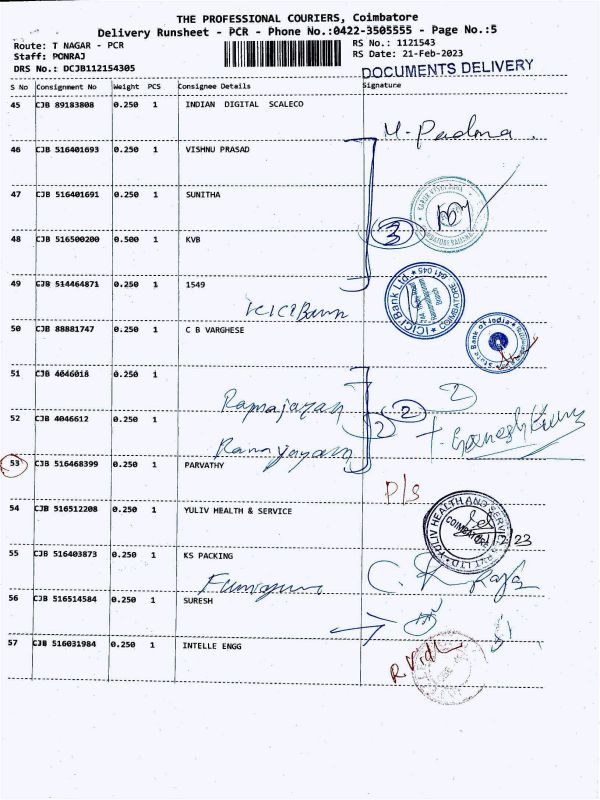 THE PROFESSIONAL COURIERS, Coimbatore
Delivery Runsheet - PCR - Phone No.:0422-3505555 - Page No.:5
Route: T NAGAR - PCR
RS No.: 1121543
Staff: PONRAJ
RS Date: 21-Feb-2023
DRS No.: DCJB112154305
DOCUMENTS DELIVERY
S No Consignment No Weight PCS Consignee Details Signature
45 CJB 89183808 0.250 1 INDIAN DIGITAL SCALECO
M. Padma .
46 CJB 516401693 0.250 1 VISHNU PRASAD
47 CJB 516401691 0.250 1 SUNITHA
48 CJB 516500200 0.500 1 KVB
3
49 CJB 514464871 0.250 1 1549
ICICI Bank Ltd. COIMBATORE 641 045
ICICI Bank
50 CJB 88881747 0.250 1 C B VARGHESE
State Bank of India
51 CJB 4046018 0.250 1
2
Ramajayam
2
52 CJB 4046612 0.250 1
2
T. Ganesh Kumar
Ramajayam
53 CJB 516468399 0.250 1 PARVATHY
P/S
54 CJB 516512208 0.250 1 YULIV HEALTH & SERVICE
YULIV HEALTH AND SERVICES PVT LTD COIMBATORE
55 CJB 516403873 0.250 1 KS PACKING
56 CJB 516514584 0.250 1 SURESH
57 CJB 516031984 0.250 1 INTELLE ENGG